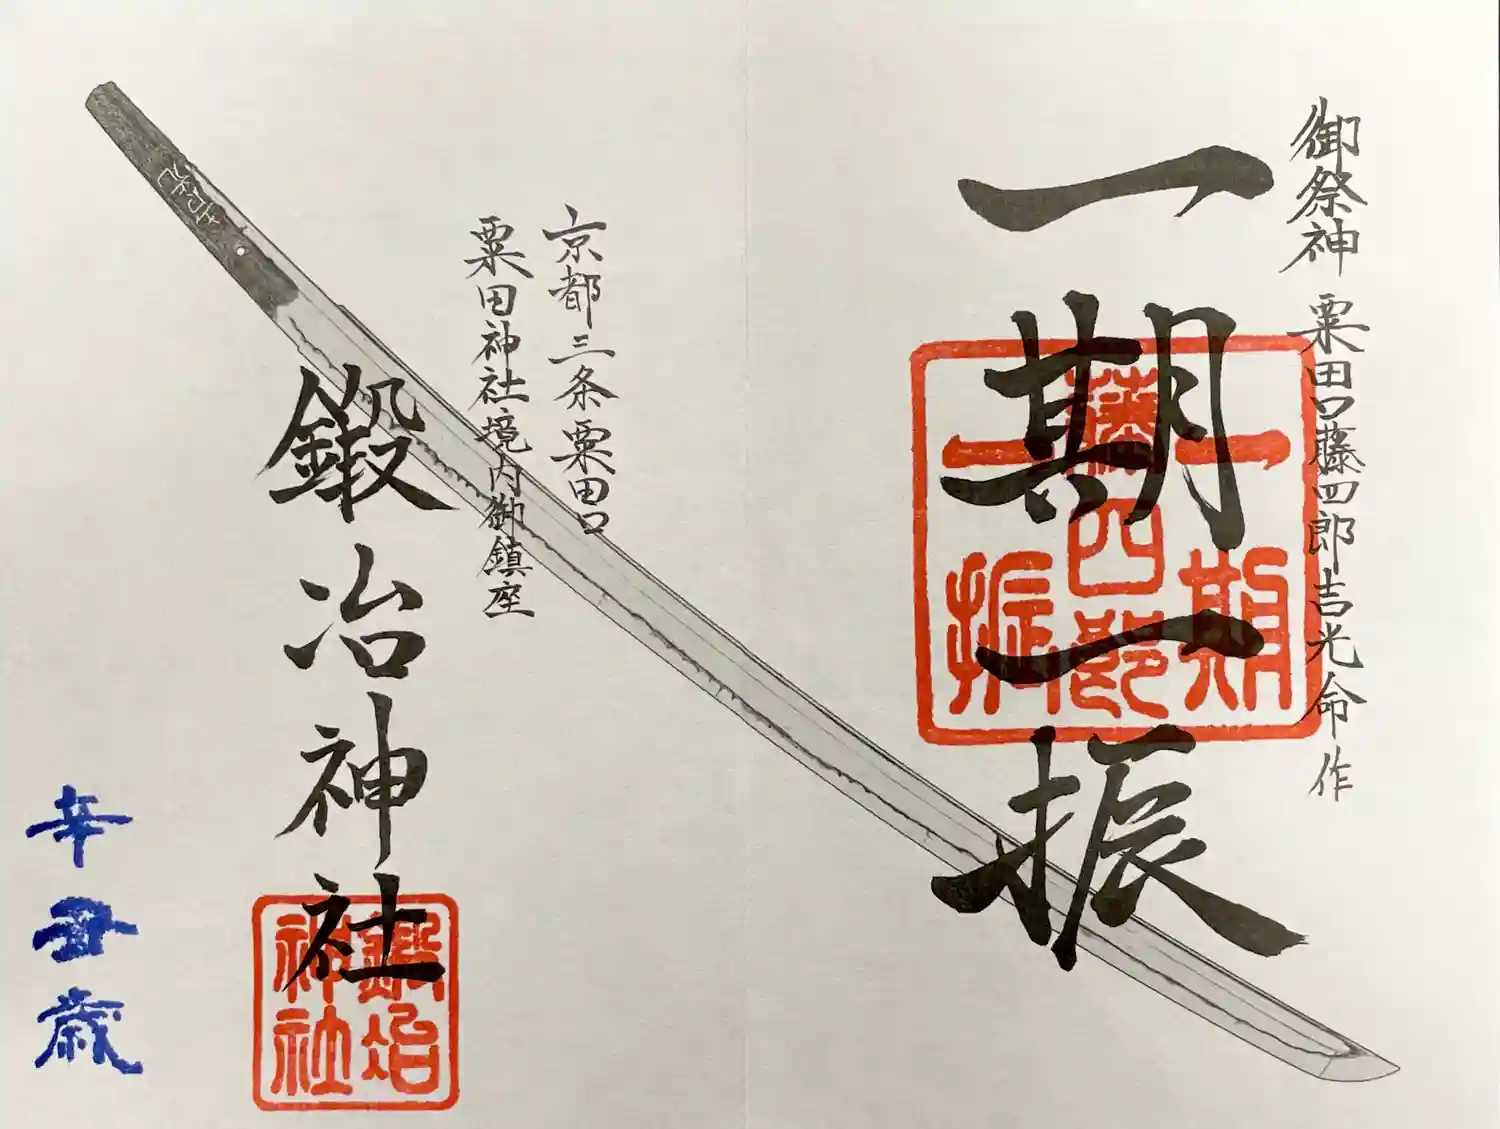 御祭神 粟田口藤四郎吉光命作
一期一振
一期
藤四郎
一振
京都三条粟田口
粟田神社境内御鎮座
鍛冶神社
鍛冶
神社
吉光
辛丑歳